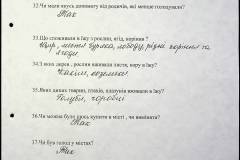 32.Чи мали якусь допомогу від родичів, які менше голодували?
Так
33.Що споживали в їжу з рослин, ягід, коріння ?
Щир, листя буряка, лободу, рідкі коріння та
ягоди.
34.З яких дерев , рослин вживали листя, кору в їжу?
35.Яких диких тварин, птахів, плазунів вживали в їжу?
Голуби, горобці
36.Чи можна було щось купити в місті , чи виміняти?
Так
37.Чи був голод у містах?
Так